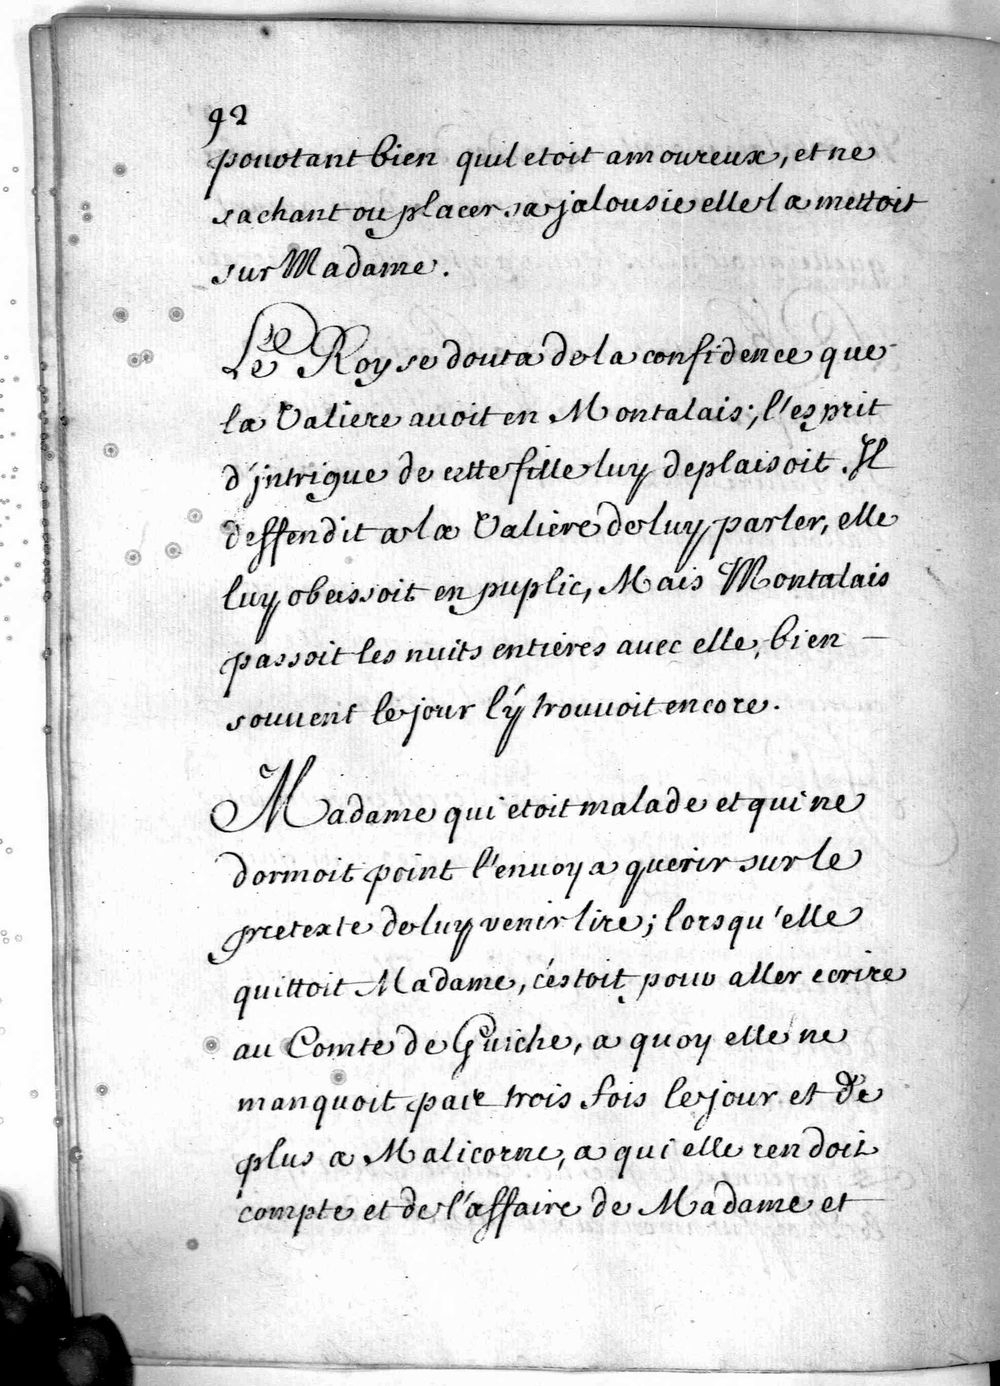 92
pouotant bien quil etoit amoureux, et ne
sachant ou placer sa jalousie elle la mettoit
sur Madame.
Le Roy se douta de la confidence que
la Valiere auoit en Montalais; l'esprit
d'jntrigue de cette fille luy deplaisoit. Jl
deffendit a la Valiere de luy parler, elle
luy obeissoit en puplic, Mais Montalais
passoit les nuits entieres auec elle, bien
souuent le jour l'ÿ trouuoit encore.
Madame qui etoit malade et qui ne
dormoit point l'enuoya querir sur le
pretexte de luy venir lire; lorsqu'elle
quittoit Madame, c'estoit pour aller ecrire
au Comte de Guiche, a quoy elle ne
manquoit pas trois fois le jour et de
plus a Malicorne, a qui elle rendoit
compte et de l'affaire de Madame et